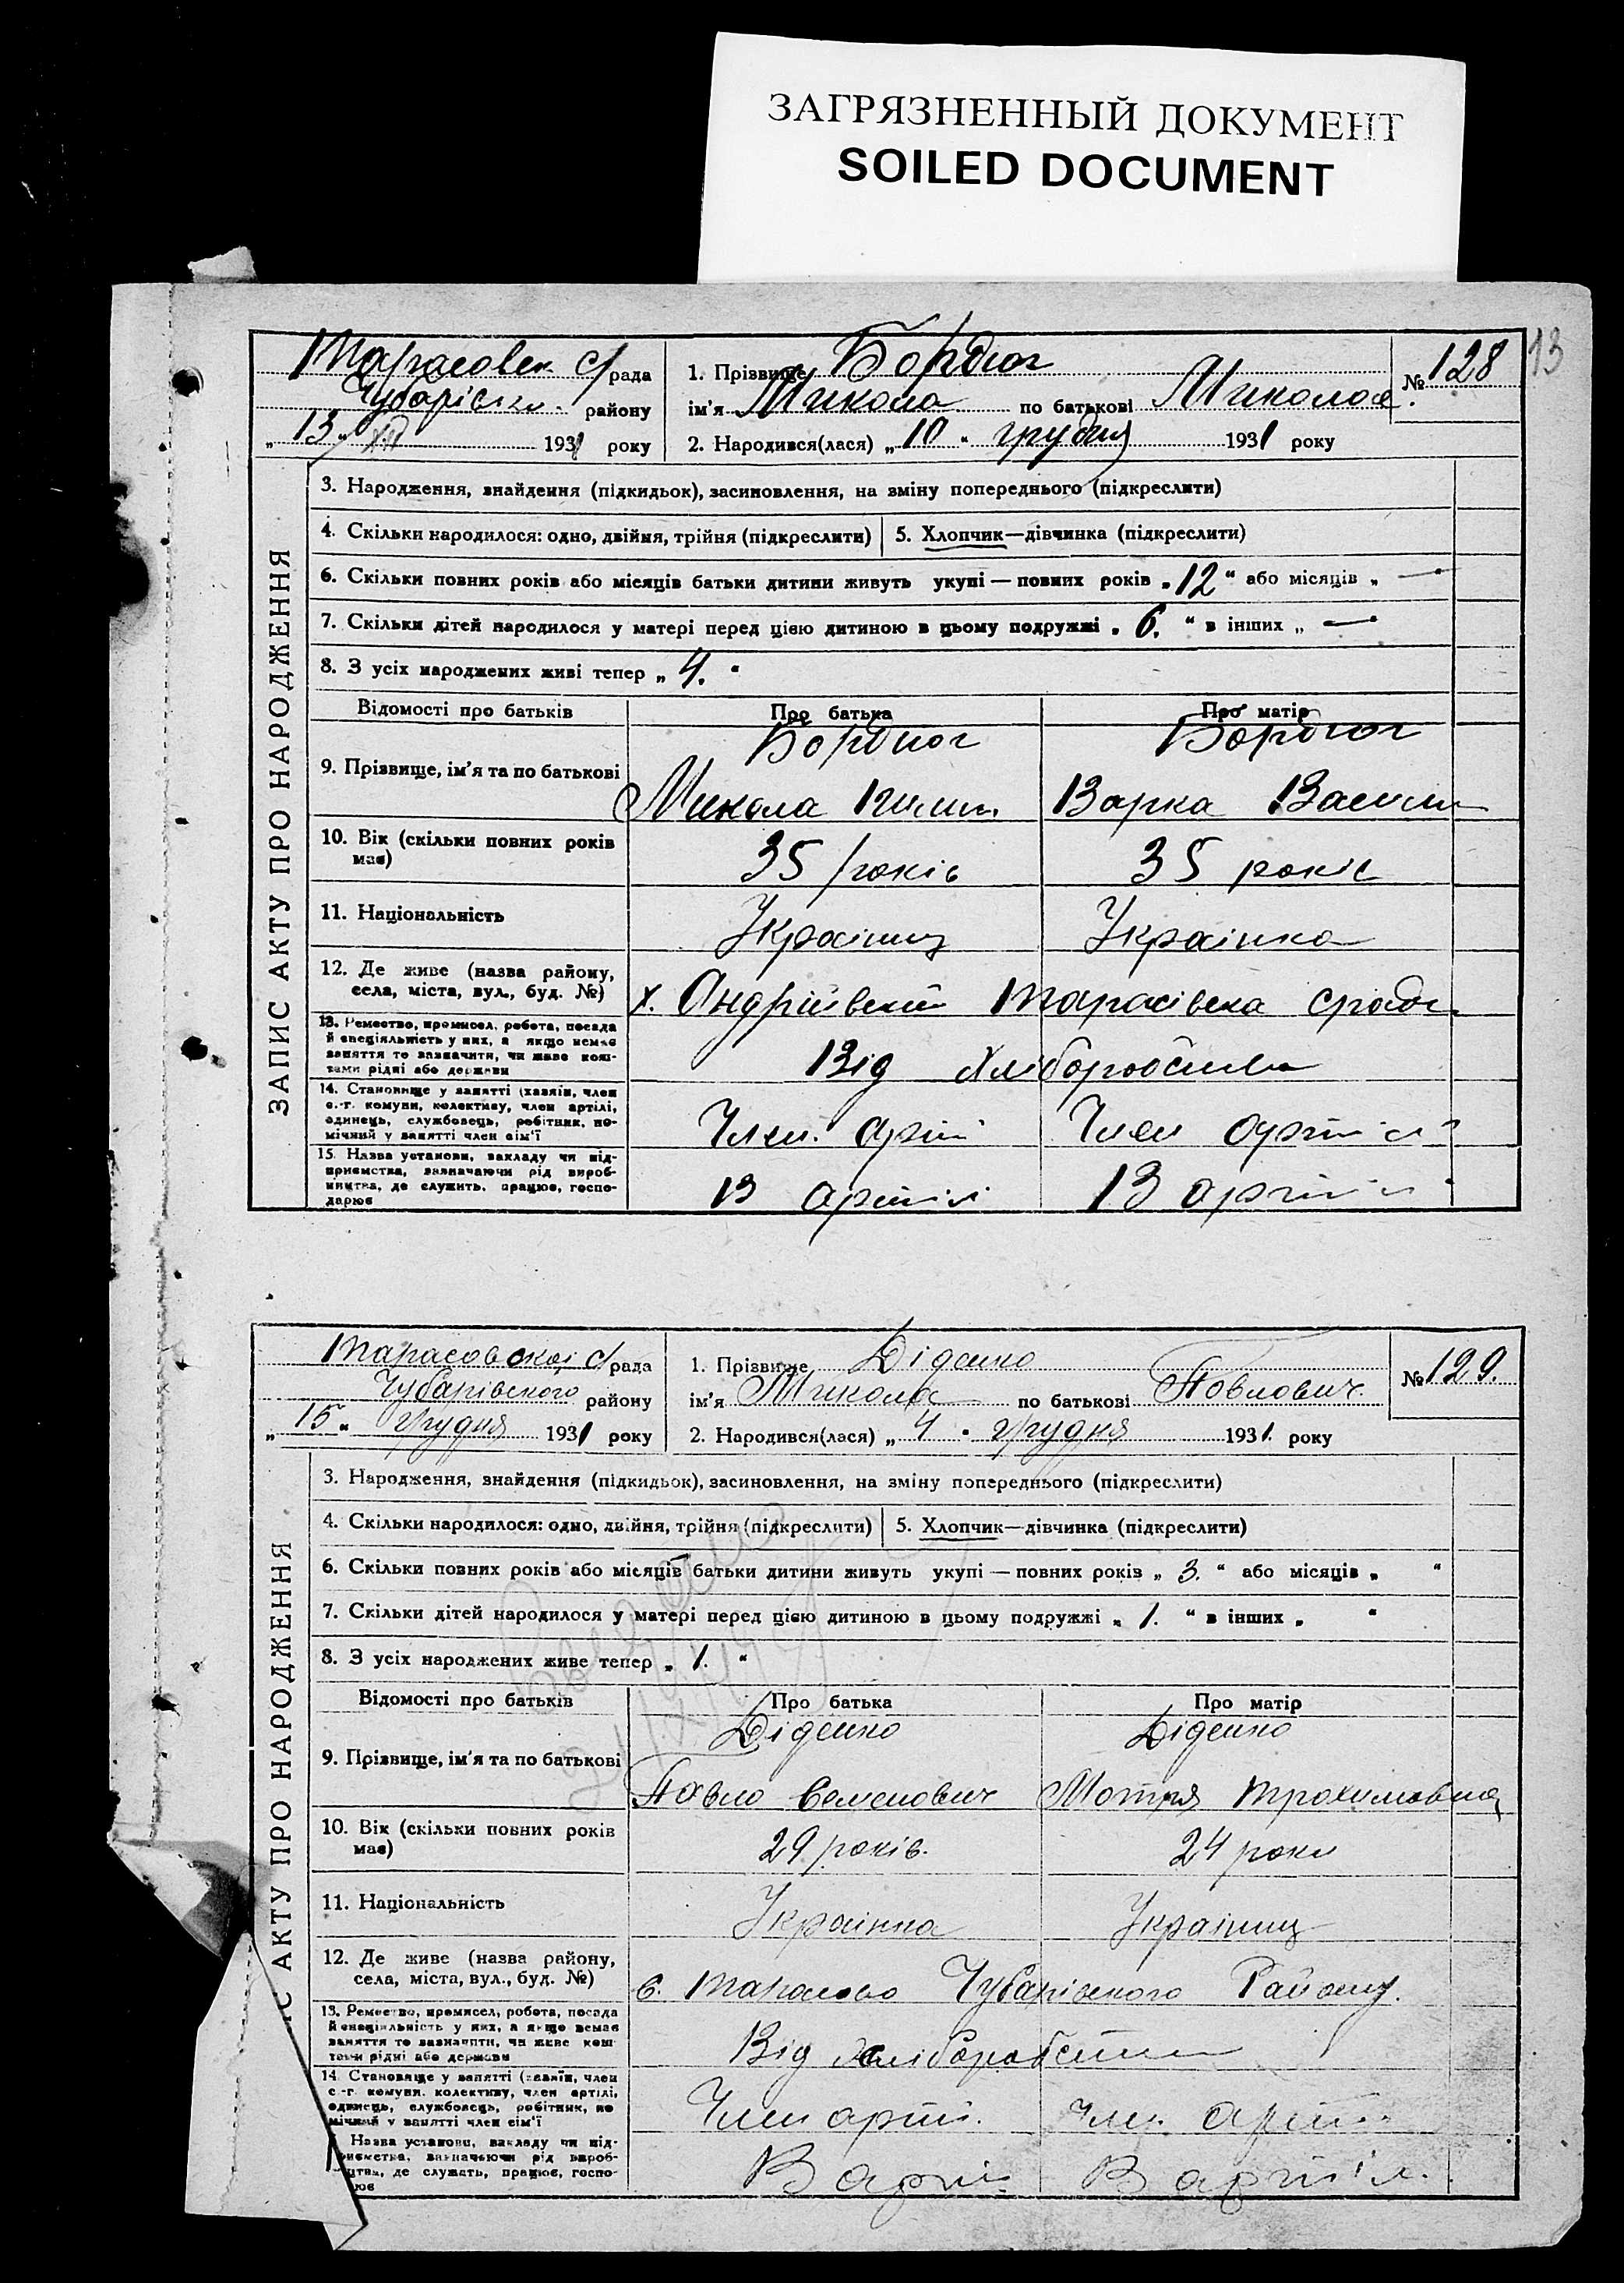 ЗАГРЯЗНЕННЫЙ ДОКУМЕНТ
SOILED DOCUMENT
13
Тарасовск с/рада
Чубарівськ. району
„13„ XII 1931 року
1. Прізвище Бордюг
ім'я Микола по батькові Микола
2. Народився(лася) „10" грудня 1931 року
№ 128
ЗАПИС АКТУ ПРО НАРОДЖЕННЯ
3. Народження, знайдення (підкидьок), засиновлення, на зміну попереднього (підкреслити)
4. Скільки народилося: одно, двійня, трійня (підкреслити) 5. Хлопчик—дівчинка (підкреслити)
6. Скільки повних років або місяців батьки дитини живуть укупі — повних років „12" або місяців „ —
7. Скільки дітей народилося у матері перед цією дитиною в цьому подружжі „6." в інших „ —
8. З усіх народжених живі тепер „4."
Відомості про батьків Про батька Про матір
Бордюг Бордюг
9. Прізвище, ім'я та по батькові
Микола Варка Васили
10. Вік (скільки повних років має) 35 років 35 років
11. Національність Українец Українка
12. Де живе (назва району, села, міста, вул., буд. №) х. Андрійвській Тарасівська сради
13. Ремество, промисел, робота, посада й спеціяльність у них, а якщо немає заняття то зазначити, чи живе коштами рідні або держави Від хліборобства
14. Становище у занятті (хазяїн, член с.-г. комуни, колективу, член артілі, одинець, службовець, робітник, помічний у занятті член сім'ї Член. арті Член артілі
15. Назва установи, закладу чи підприємства, зазначаючи рід виробництва, де служить, працює, господарює В артілі В артілі
Тарасовскої с/рада
Чубарівського району
„15„ грудня 1931 року
1. Прізвище Діденко
ім'я Микола по батькові Павлович.
2. Народився(лася) „4" грудня 1931. року
№ 129.
С АКТУ ПРО НАРОДЖЕННЯ
3. Народження, знайдення (підкидьок), засиновлення, на зміну попереднього (підкреслити)
4. Скільки народилося: одно, двійня, трійня (підкреслити) 5. Хлопчик—дівчинка (підкреслити)
6. Скільки повних років або місяців батьки дитини живуть укупі — повних років „3." або місяців „ "
7. Скільки дітей народилося у матері перед цією дитиною в цьому подружжі „1." в інших „ "
8. З усіх народжених живе тепер „1."
Відомості про батьків Про батька Про матір
Діденко Діденко
9. Прізвище, ім'я та по батькові
Павло Семенович Мотря Трохимовна
10. Вік (скільки повних років має) 29 років. 24 роки
11. Національність Українка Українец
12. Де живе (назва району, села, міста, вул., буд. №) с. Тарасово Чубарівского Району.
13. Ремество, промисел, робота, посада й спеціяльність у них, а якщо немає заняття то зазначити, чи живе коштами рідні або держави Від хліборобства
14. Становище у занятті (хазяїн, член с.-г. комуни, колективу, член артілі, одинець, службовець, робітник, помічний у занятті член сім'ї Член арті. член. арті
Назва установи, закладу чи підприємства, зазначаючи рід виробництва, де служать, працює, господарює В арті. В артіл.